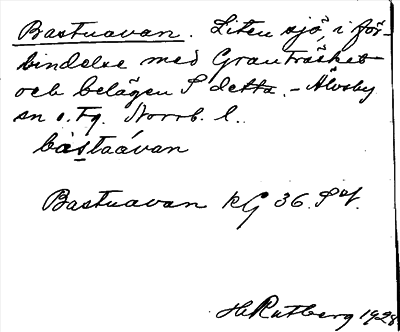 Bastuavan. Liten sjö, i för-
bindelse med Granträsket
och belägen S detta. - Älvsby
sn o. Fg. Norrb. l.
bastaávan
Bastuavan kG 36. S
H Rutberg 1928